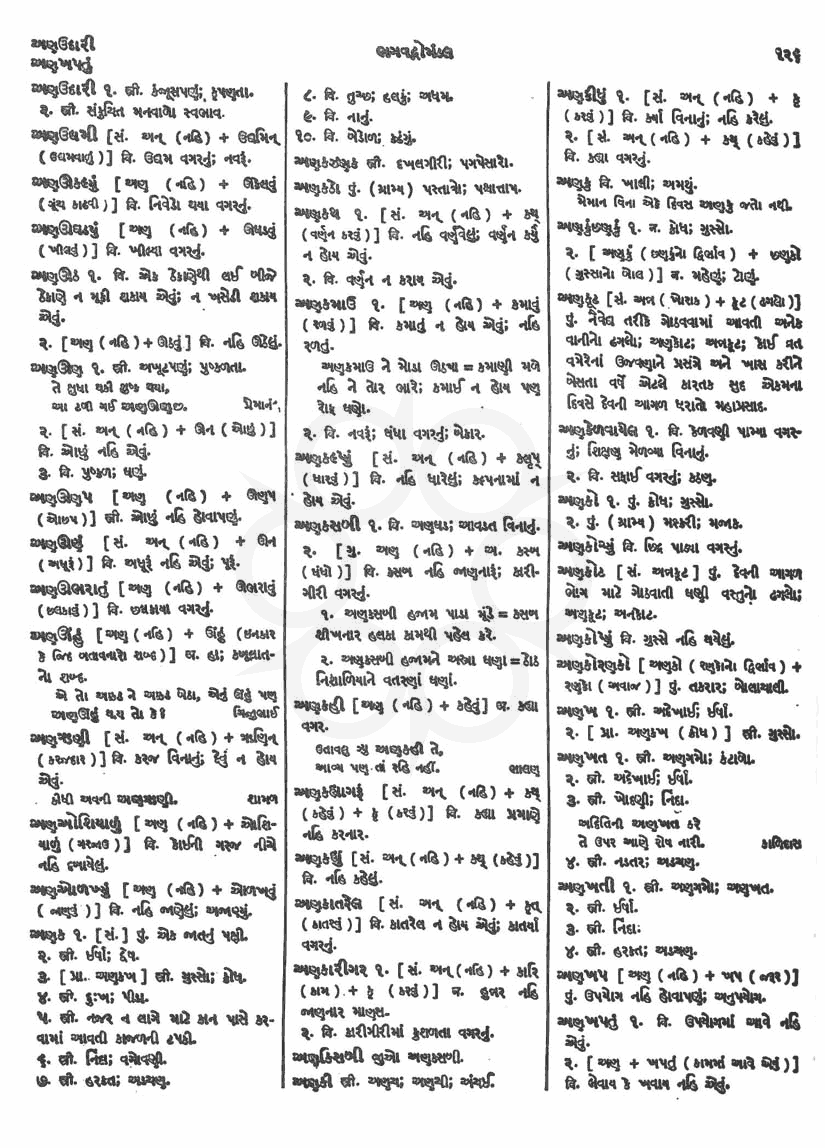 અણઉદારી
અણખપતું
ભગવદ્ગોમંડલ
૧૨૬
અણઉદારી ૧. સ્ત્રી. કંજૂસપણું; કૃપણતા.
૨. સ્ત્રી. સંકુચિત મનવાળો સ્વભાવ.
અણઉદ્યમી [ સં. અન્ ( નહિ ) + ઉદ્યમિન્
( ઉદ્યમવાળું ) ] વિ. ઉદ્યમ વગરનું; નવરૂં.
અણઊકલ્યું [ અણ ( નહિ ) + ઊકલવું
( ગૂંચ કાઢવી ) ] વિ. નિવેડો થયા વગરનું.
અણઊઘડ્યું [ અણ ( નહિ ) + ઊઘડવું
( ખીલવું ) ] વિ. ખીલ્યા વગરનું.
અણઊઠ ૧. વિ. એક ઠેકાણેથી લઈ બીજે
ઠેકાણે ન મૂકી શકાય એવું; ન ખસેડી શકાય
એવું.
૨. [ અણ ( નહિ ) + ઊઠવું ] વિ. નહિ ઊઠેલું.
અણઊણ ૧. સ્ત્રી. અખૂટપણું; પુષ્કળતા.
તે ક્ષુધા થકી શુષ્ક થયા,
આ ટળી ગઈ અણઊણજી. પ્રેમાનંદ
૨. [ સં. અન્ ( નહિ ) + ઊન ( ઓછું ) ]
વિ. ઓછું નહિ એવું.
૩. વિ. પુષ્કળ; ઘણું.
અણઊણપ [ અણ ( નહિ ) + ઊણપ
( ઓછપ ) ] સ્ત્રી. ઓછું નહિ હોવાપણું.
અણઊણું [ સં. અન્ ( નહિ ) + ઊન
( અધૂરૂં ) ] વિ. અધૂરૂં નહિ એવું; પૂરૂં.
અણઊભરાતું [ અણ ( નહિ ) + ઊભરાવું
( છલકાવું ) ] વિ. છલકાયા વગરનું.
અણઊંહું [ અણ ( નહિ ) + ઊંહું ( ઇનકાર
કે જિદ્દ બતાવનારો શબ્દ ) ] અ. હા; કબૂલાત-
નો શબ્દ.
એ તો અક્કડ ને અક્કડ બેઠા, એનું ઊંહું પણ
અણઊંહું થાય તો કે? ચિનુભાઈ
અણઋણી [ સં. અન્ ( નહિ ) + ઋણિન્
( કરજદાર ) ] વિ. કરજ વિનાનું; દેવું ન હોય
એવું.
કીધી અવની અણઋણી. શામળ
અણઓશિયાળું [ અણ ( નહિ ) + ઓશિ-
યાળું ( ગરજાઉ ) ] વિ. કોઈની ગરજ નીચે
નહિ દબાયેલું.
અણઓળખ્યું [ અણ ( નહિ ) + ઓળખવું
( જાણવું ) ] વિ. નહિ જાણેલું; અજાણ્યું.
અણક ૧. [ સં. ] પું. એક જાતનું પક્ષી.
૨. સ્ત્રી. ઈર્ષા; દ્વેષ.
૩. [ પ્રા. અણક્ખ ] સ્ત્રી. ગુસ્સો; ક્રોધ.
૪. સ્ત્રી. દુઃખ; પીડા.
૫. સ્ત્રી. નજર ન લાગે માટે કાન પાસે કર-
વામાં આવતી કાજળની ટપકી.
૬. સ્ત્રી. નિંદા; વગોવણી.
૭. સ્ત્રી. હરકત; અડચણ.
૮. વિ. તુચ્છ; હલકું; અધમ.
૯. વિ. નાનું.
૧૦. વિ. બેડોળ; કઢંગું.
અણકછણક સ્ત્રી. દખલગીરી; પગપેસારો.
અણકઠો પું. ( ગ્રામ્ય ) પસ્તાવો; પશ્ચાત્તાપ.
અણકથ ૧. [ સં. અન્ ( નહિ ) + કથ્
( વર્ણન કરવું ) ] વિ. નહિ વર્ણવેલું; વર્ણન કર્યું
ન હોય એવું.
૨. વિ. વર્ણન ન કરાય એવું.
અણકમાઉ ૧. [ અણ ( નહિ ) + કમાવું
( રળવું ) ] વિ. કમાતું ન હોય એવું; નહિ
રળતું.
અણકમાઉ ને મોડા ઊઠયા = કમાણી મળે
નહિ ને તોર ભારે; કમાઈ ન હોય પણ
રોફ ઘણો.
૨. વિ. નવરૂં; ધંધા વગરનું; બેકાર.
અણકલ્પ્યું [ સં. અન્ ( નહિ ) + કલૃપ્
( ધારવું ) ] વિ. નહિ ધારેલું; કલ્પનામાં ન
હોય એવું.
અણકસબી ૧. વિ. અણઘડ; આવડત વિનાનું.
૨. [ ગુ. અણ ( નહિ ) + અ. કસ્બ
( ધંધો ) ] વિ. કસબ નહિ જાણનારૂં; કારી-
ગીરી વગરનું.
૧. અણકસબી હજામ પાડા મૂંડે = કસબ
શીખનાર હલકા કામથી પહેલ કરે.
૨. અણકસબી હજામને અસ્ત્રા ઘણા = ઠોઠ
નિશાળિયાને વતરણાં ઘણાં.
અણકહી [ અણ ( નહિ ) + કહેવું ] અ. કહ્યા
વગર.
ઉતાવલુ જુ અણકહી તે,
આવ્ય પણ તાં રહિ નહીં. ભાલણ
અણકહ્યાગરૂં [ સં. અન્ ( નહિ ) + કથ્
( કહેવું ) + કૃ ( કરવું ) ] વિ. કહ્યા પ્રમાણે
નહિ કરનાર.
અણકહ્યું [ સં. અન્ ( નહિ ) + કથ્ ( કહેવું ) ]
વિ. નહિ કહેલું.
અણકાતરેલ [ સં. અન્ ( નહિ ) + કૃત્
( કાતરવું ) ] વિ. કાતરેલ ન હોય એવું; કાતર્યા
વગરનું.
અણકારીગર ૧. [ સં. અન્ ( નહિ ) + કારિ
( કામ ) + કૃ ( કરવું ) ] ન. હુન્નર નહિ
જાણનાર માણસ.
૨. વિ. કારીગીરીમાં કુશળતા વગરનું.
અણકિસબી જુઓ અણકસબી.
અણકી સ્ત્રી. અણચ; અણચી; અંચઈ.
અણકીધું ૧. [ સં. અન્ ( નહિ ) + કૃ
( કરવું ) ] વિ. કર્યા વિનાનું; નહિ કરેલું.
૨. [ સં. અન્ ( નહિ ) + કથ્ ( કહેવું ) ]
વિ. કહ્યા વગરનું.
અણકુ વિ. ખાલી; અમથું.
મેમાન વિના એક દિવસ અણકુ જતો નથી.
અણકુંછણકું ૧. ન. ક્રોધ; ગુસ્સો.
૨. [ અણકું ( છણકુંનો દ્વિર્ભાવ ) + છણકો
( ગુસ્સાનો બોલ ) ] ન. મહેણું; ટોણું.
અણકૂટ [ સં. અન્ન ( ખોરાક ) + કૂટ ( ઢગલો ) ]
પું. નૈવેદ્ય તરીકે ગોઠવવામાં આવતી અનેક
વાનીનો ઢગલો; અણકોટ; અન્નકૂટ; કોઈ વ્રત
વગેરેનાં ઉજવણાને પ્રસંગે અને ખાસ કરીને
બેસતા વર્ષે એટલે કારતક સુદ એકમના
દિવસે દેવની આગળ ધરાતો મહાપ્રસાદ.
અણકેળવાયેલ ૧. વિ. કેળવણી પામ્યા વગર-
નું; શિક્ષણ મેળવ્યા વિનાનું.
૨. વિ. સફાઈ વગરનું; કઠણ.
અણકો ૧. પું. ક્રોધ; ગુસ્સો.
૨. પું. ( ગ્રામ્ય ) મશ્કરી; મજાક.
અણકોચ્યું વિ. છિદ્ર પાડ્યા વગરનું.
અણકોટ [ સં. અન્નકૂટ ] પું. દેવની આગળ
ભોગ માટે ગોઠવાતી ઘણી વસ્તુનો ઢગલો;
અણકૂટ; અનકોટ.
અણકોપ્યું વિ. ગુસ્સે નહિ થયેલું.
અણકોરણકો [ અણકો ( રણકોનો દ્વિર્ભાવ ) +
રણકો ( અવાજ ) ] પું. તકરાર; બોલાચાલી.
અણખ ૧. સ્ત્રી. અદેખાઈ; ઈર્ષા.
૨. [ પ્રા. અણક્ખ ( ક્રોધ ) ] સ્ત્રી. ગુસ્સો.
અણખત ૧. સ્ત્રી. અણગમો; કંટાળો.
૨. સ્ત્રી. અદેખાઈ; ઈર્ષા.
૩. સ્ત્રી. ખોદણી; નિંદા.
અદિતિની અણખત કરે
તે ઉપર આણે રોષ નારી. કાળિદાસ
૪. સ્ત્રી. નડતર; અડચણ.
અણખતી ૧. સ્ત્રી. અણગમો; અણખત.
૨. સ્ત્રી. ઈર્ષા.
૩. સ્ત્રી. નિંદા.
૪. સ્ત્રી. હરકત; અડચણ.
અણખપ [ અણ ( નહિ ) + ખપ ( જરૂર ) ]
પું. ઉપયોગ નહિ હોવાપણું; અનુપયોગ.
અણખપતું ૧. વિ. ઉપયોગમાં આવે નહિ
એવું.
૨. [ અણ + ખપતું ( કામમાં આવે એવું ) ]
વિ. લેવાય કે ખવાય નહિ એવું.